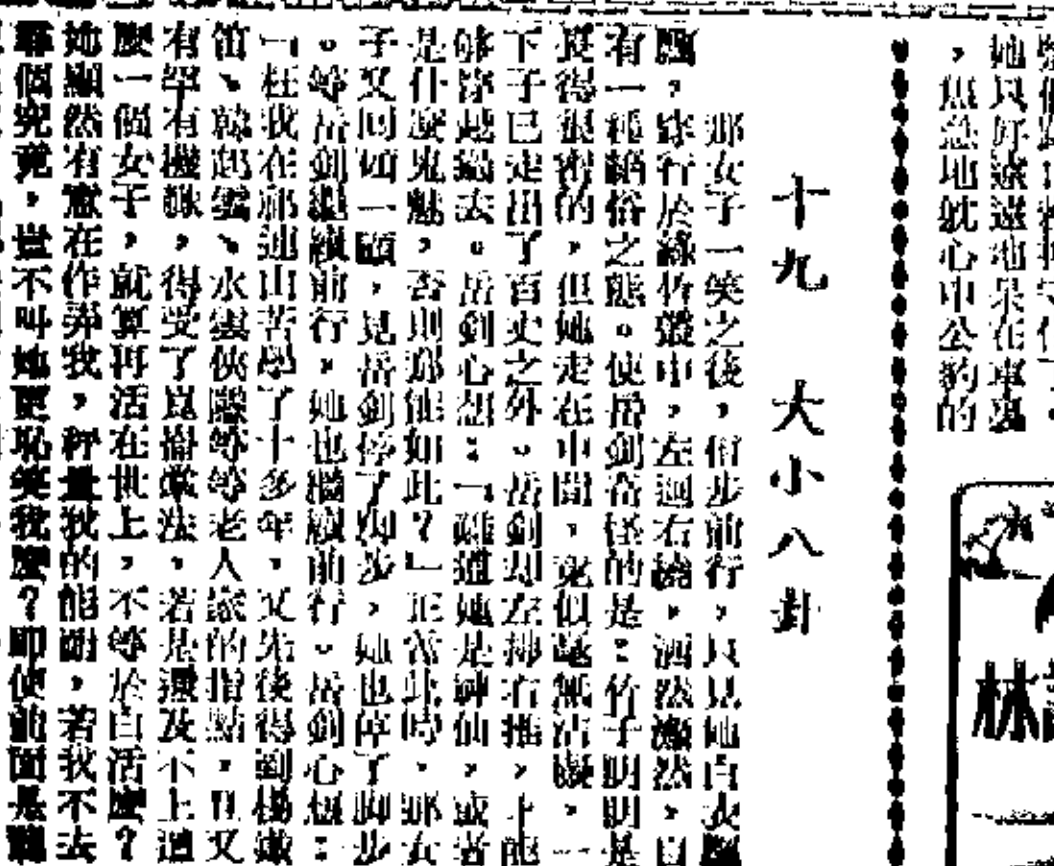 她只好遠遠地呆在車裏
，焦急地躭心申公豹的
十九　大小八卦
那女子一笑之後，偕步前行，只見她白衣飄
飄，穿行於綠竹叢中，左迴右繞，洒然瀟然，自
有一種絕俗之態。使岳劍奇怪的是：竹子明明是
長得很密的，但她走在中間，竟似毫無沾礙，一
下子已走出了百丈之外。岳劍却左拂右推，才能
够穿越過去。岳劍心想：「難道她是神仙，或者
是什麼鬼魅，否則那能如此？」正當此時，那女
子又回頭一顧，見岳劍停了脚步，她也停了脚步
。等岳劍繼續前行，她也繼續前行。岳劍心想：
「枉我在祁連山苦學了十多年，又先後得到楊
笛、韓起雲、水雲俠隱等等老人家的指點，且又
有罕有機緣，得受了崑崙掌法，若是還及不上這
麼一個女子，就算再活在世上，不等於白活麼？
她顯然有意在作弄我，秤量我的能耐，若我不去
尋個究竟，豈不叫她更恥笑我麼？即使前面是
林